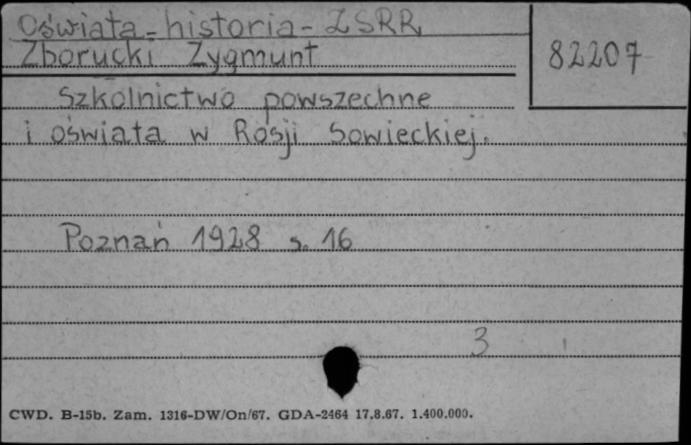 Oświata - historia - ZSRR
Zborucki Zygmunt
82207
Szkolnictwo powszechne
i oświata w Rosji Sowieckiej.
Poznań 1928 s. 16
3
CWD. B-15b. Zam. 1316-DW/On/67. GDA-2464 17.8.67. 1.400.000.